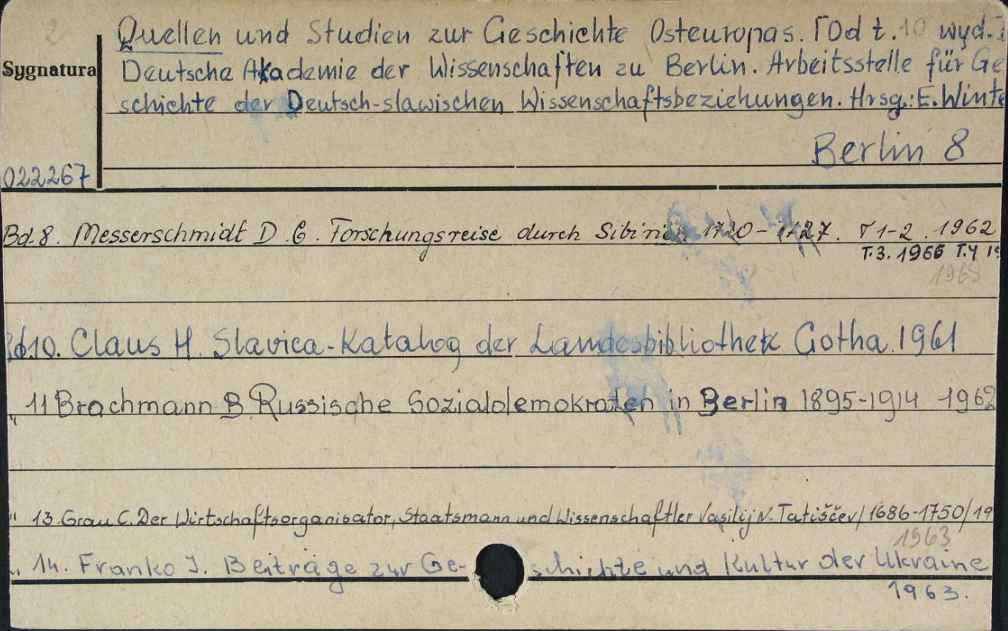 2
Quellen und Studien zur Geschichte Osteuropas. [Od t. 10 wyd.
Sygnatura
Deutsche Akademie der Wissenschaften zu Berlin. Arbeitsstelle für Ge
schichte der Deutsch-slawischen Wissenschaftsbeziehungen. Hrsg.: E. Winte
Berlin 8
022267
Bd 8. Messerschmidt D. G. Forschungsreise durch Sibirien 1720-1727. T 1-2. 1962
T.3. 1966 T.4 19
1968
Bd 10. Claus H. Slavica-Katalog der Landesbibliothek Gotha. 1961
" 11 Brachmann B. Russische Sozialdemokraten in Berlin 1895-1914 1962
" 13. Grau C. Der Wirtschaftsorganisator, Staatsmann und Wissenschaftler Vasilij N. Tatiščev /1686-1750/ 19
1963
" 14. Franko I. Beiträge zur Ge- schichte und Kultur der Ukraine
1963.